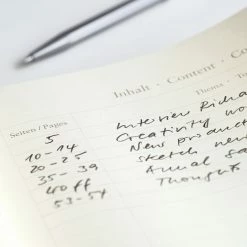 Inhalt · Content · Co
Thema · T
Seiten / Pages
5 Interview Richa
10 - 14 Creativity wo
20 - 25 New product
35 - 39 sketch new
40 ff Annual sa
53 - 54 Thoughts